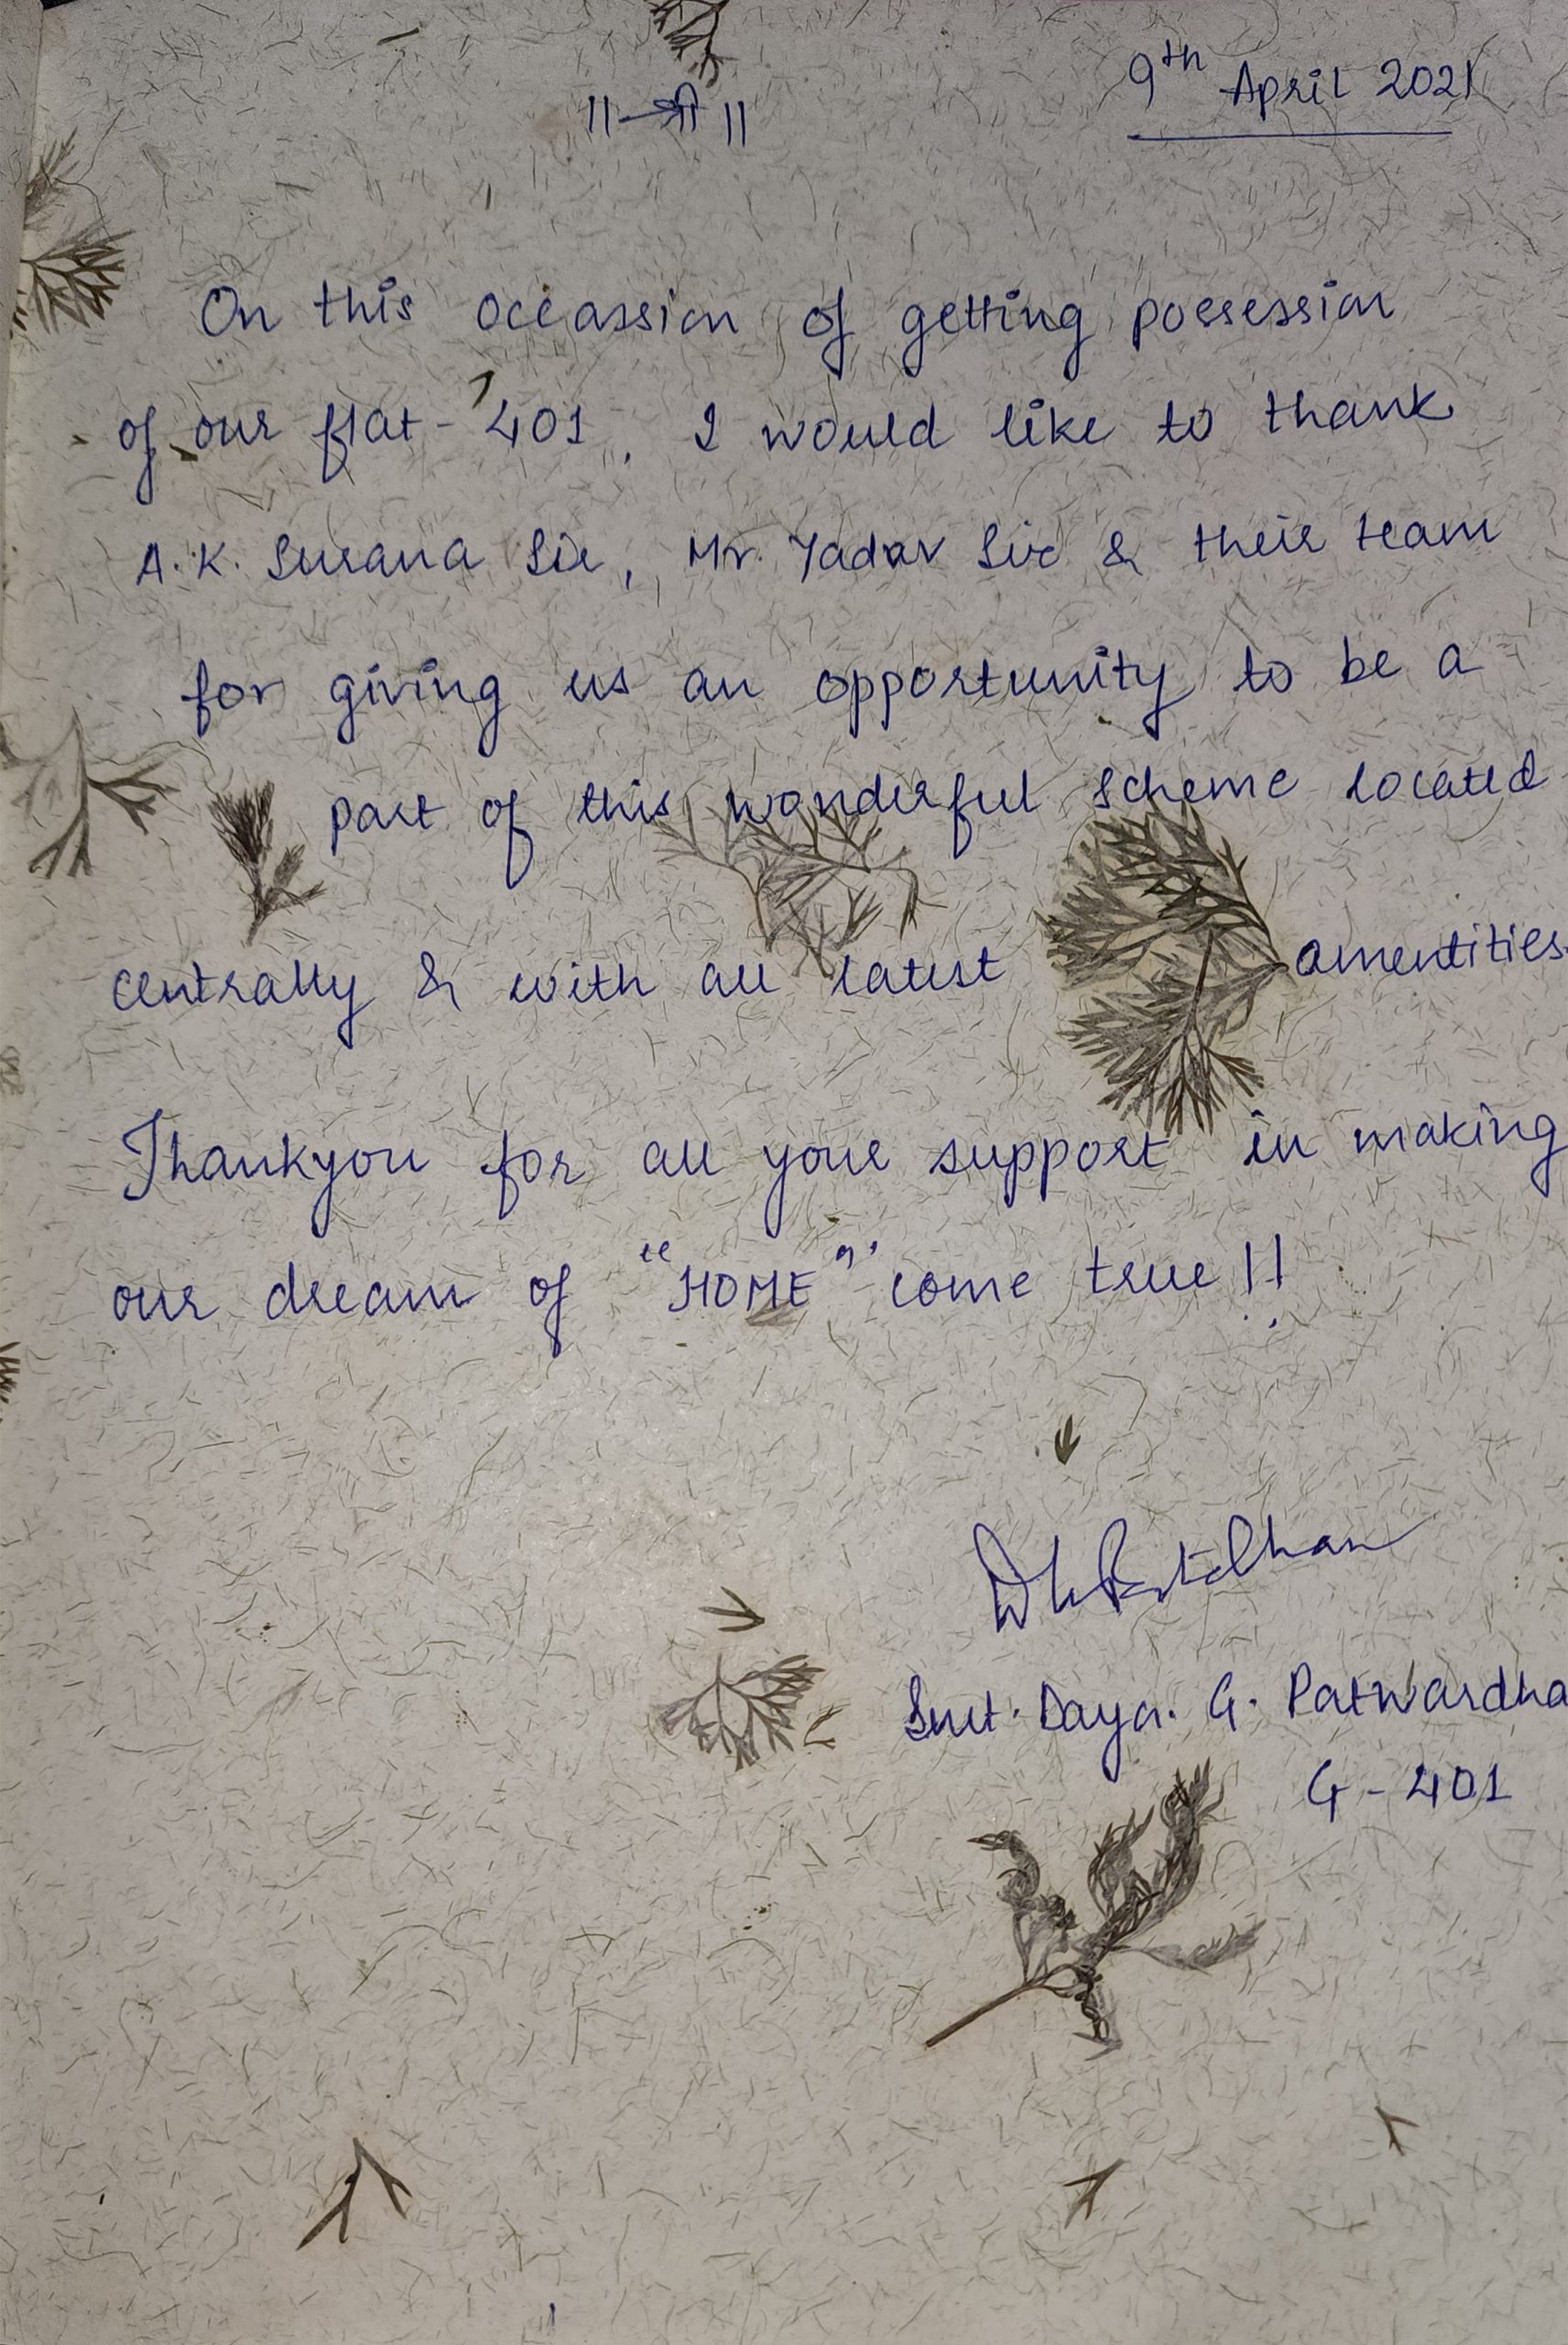 9th April 2021
॥ श्री ॥
On this occassion of getting possession
of our flat - 401, I would like to thank
A. K. Surana Sir, Mr. Yadav Sir & their team
for giving us an opportunity to be a
part of this wonderful scheme located
centrally & with all latest amentities.
Thankyou for all your support in making
our dream of "HOME" come true !!
Smt. Daya. G. Patwardha
G - 401